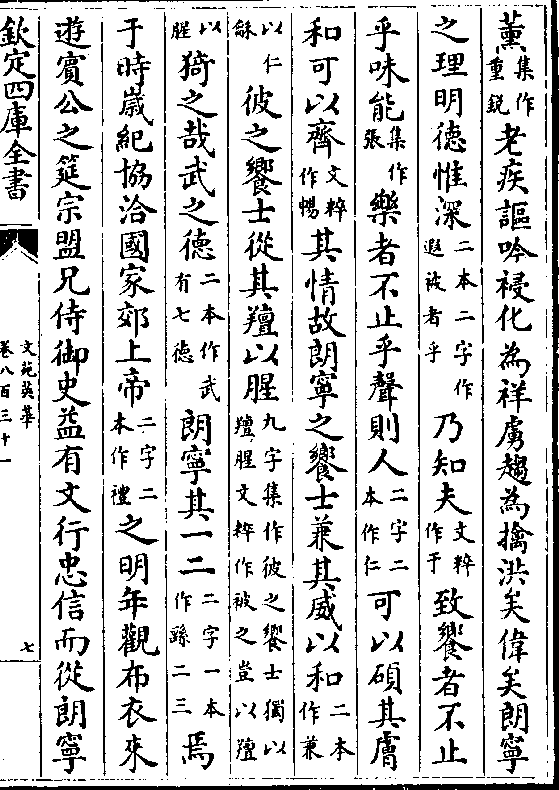 薰集作重銳老疾謳吟祲化為祥虜趨為擒洪矣偉矣朗寧
之理明德惟深二本二字作遐被者乎乃知夫文粹作于致饗者不止
乎味能集作張樂者不止乎聲則人二字二本作仁可以碩其膚
和可以齊文粹作暢其情故朗寧之饗士兼其威以和二本作兼
以仁龢彼之饗士從其羶以腥九字集作彼之饗士獨以羶腥文粹作被之豈以羶
以腥猗之哉武之德二本作武有七德朗寧其一二二字一本作繇二三焉
于時歲紀協洽國家郊上帝二字二本作禮之明年觀布衣來
遊賓公之筵宗盟兄侍御史益有文行忠信而從朗寧
欽定四庫全書
文苑英華
卷八百三十一
七